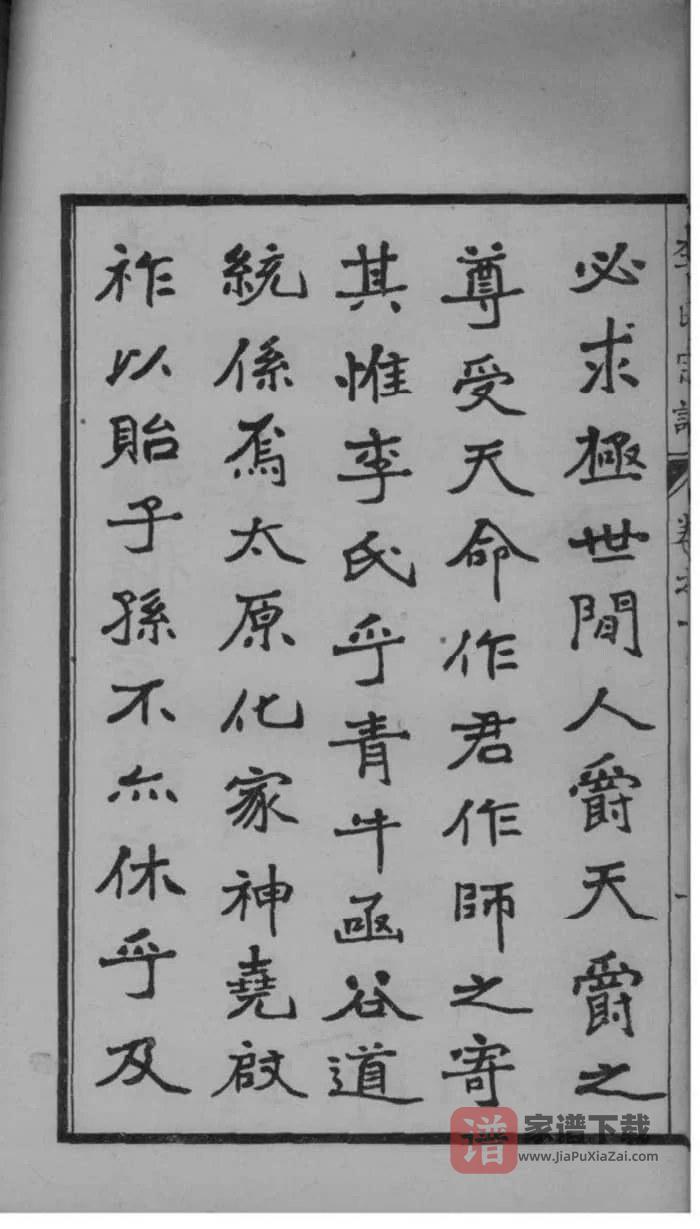 必求極世間人爵天爵之
尊受天命作君作師之寄
其惟李氏乎青牛函谷道
統係焉太原化家神堯啟
祚以貽子孫不亦休乎及
李氏宗譜 卷之一
一
谱 家谱下载
www.JiaPuXiaZai.com